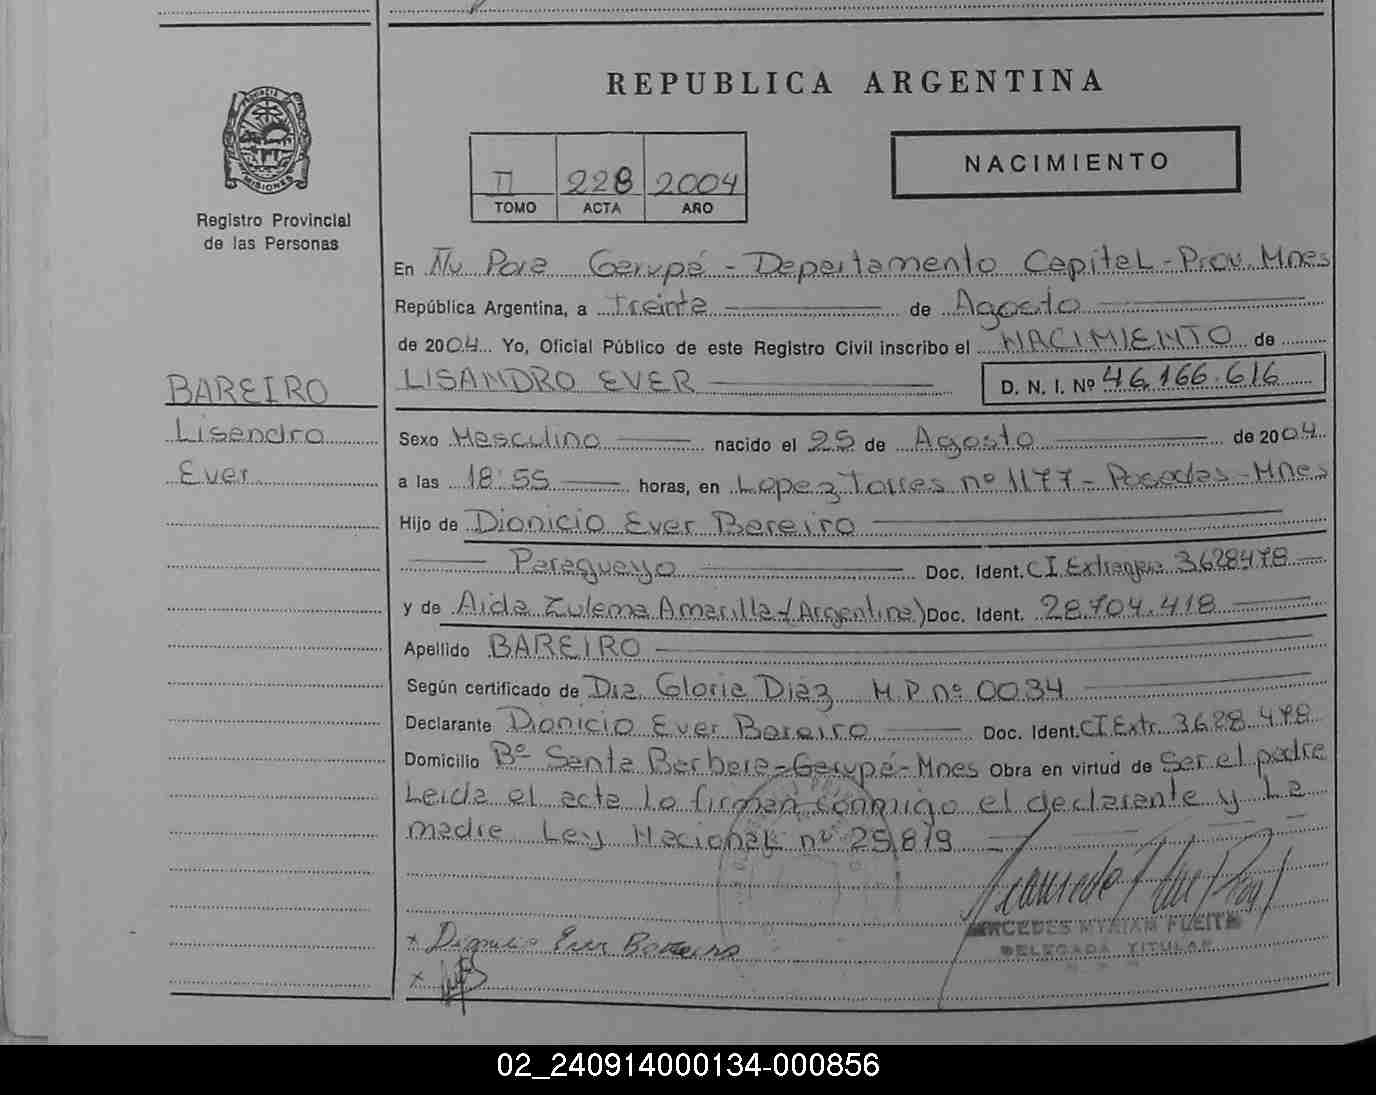 REPUBLICA ARGENTINA
PROVINCIA DE
MISIONES
Registro Provincial
de las Personas
II 228 2004
TOMO ACTA AÑO
NACIMIENTO
En Ñu Pora Garupá - Departamento Capital - Prov. Mnes
República Argentina, a Treinta de Agosto
de 2004 Yo, Oficial Público de este Registro Civil inscribo el NACIMIENTO de
LISANDRO EVER D. N. I. Nº 46.166.616
BAREIRO
Lisandro
Ever
Sexo Masculino nacido el 25 de Agosto de 2004
a las 18:55 horas, en Lopez Torres nº 1177 - Posadas - Mnes
Hijo de Dionicio Ever Bareiro
Paraguayo Doc. Ident. CI Extranjera 3628478
y de Aida Zulema Amarilla (Argentina) Doc. Ident. 28.704.418
Apellido BAREIRO
Según certificado de Dra. Gloria Diáz M.P. nº 0034
Declarante Dionicio Ever Bareiro Doc. Ident. CI Extr. 3628.478
Domicilio Bº Santa Barbara - Garupá - Mnes Obra en virtud de Ser el padre
Leida el acta lo firman conmigo el declarante y La
madre Ley Nacional nº 25.819
MERCEDES MYRIAM FLEITA
DELEGADA TITULAR
x Dionicio Ever Bareiro
x
02_240914000134-000856